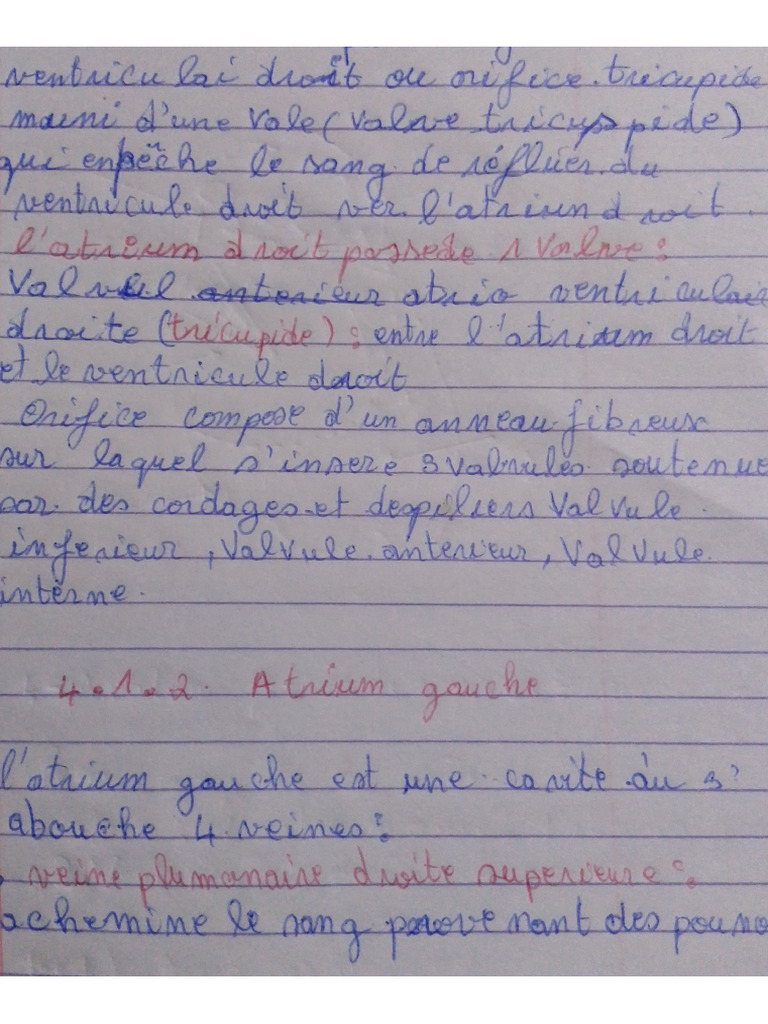 ventriculai droit ou orifice. tricupide
mauni d'une Vale (Valve tricuspide)
qui enpêche le sang de réfluer du
ventricule droit ver l'atrium droit.
l'atrium droit possede 1 Valve :
Valvul anterieur atrio ventriculair
droite (tricupide) : entre l'atrium droit
et le ventricule daroit
Orifice compose d'un anneau fibreux
sur laquel s'insere 3 valvules soutenue
par des cordages et des piliers Valvule
inferieur, Valvule. anterieur, Valvule.
interne.
4.1.2. Atrium gauche
l'atrium gauche est une cavite où s'
abouche 4 veines :
veine plumonaire droite superieure :
achemine le sang provenant des poumo